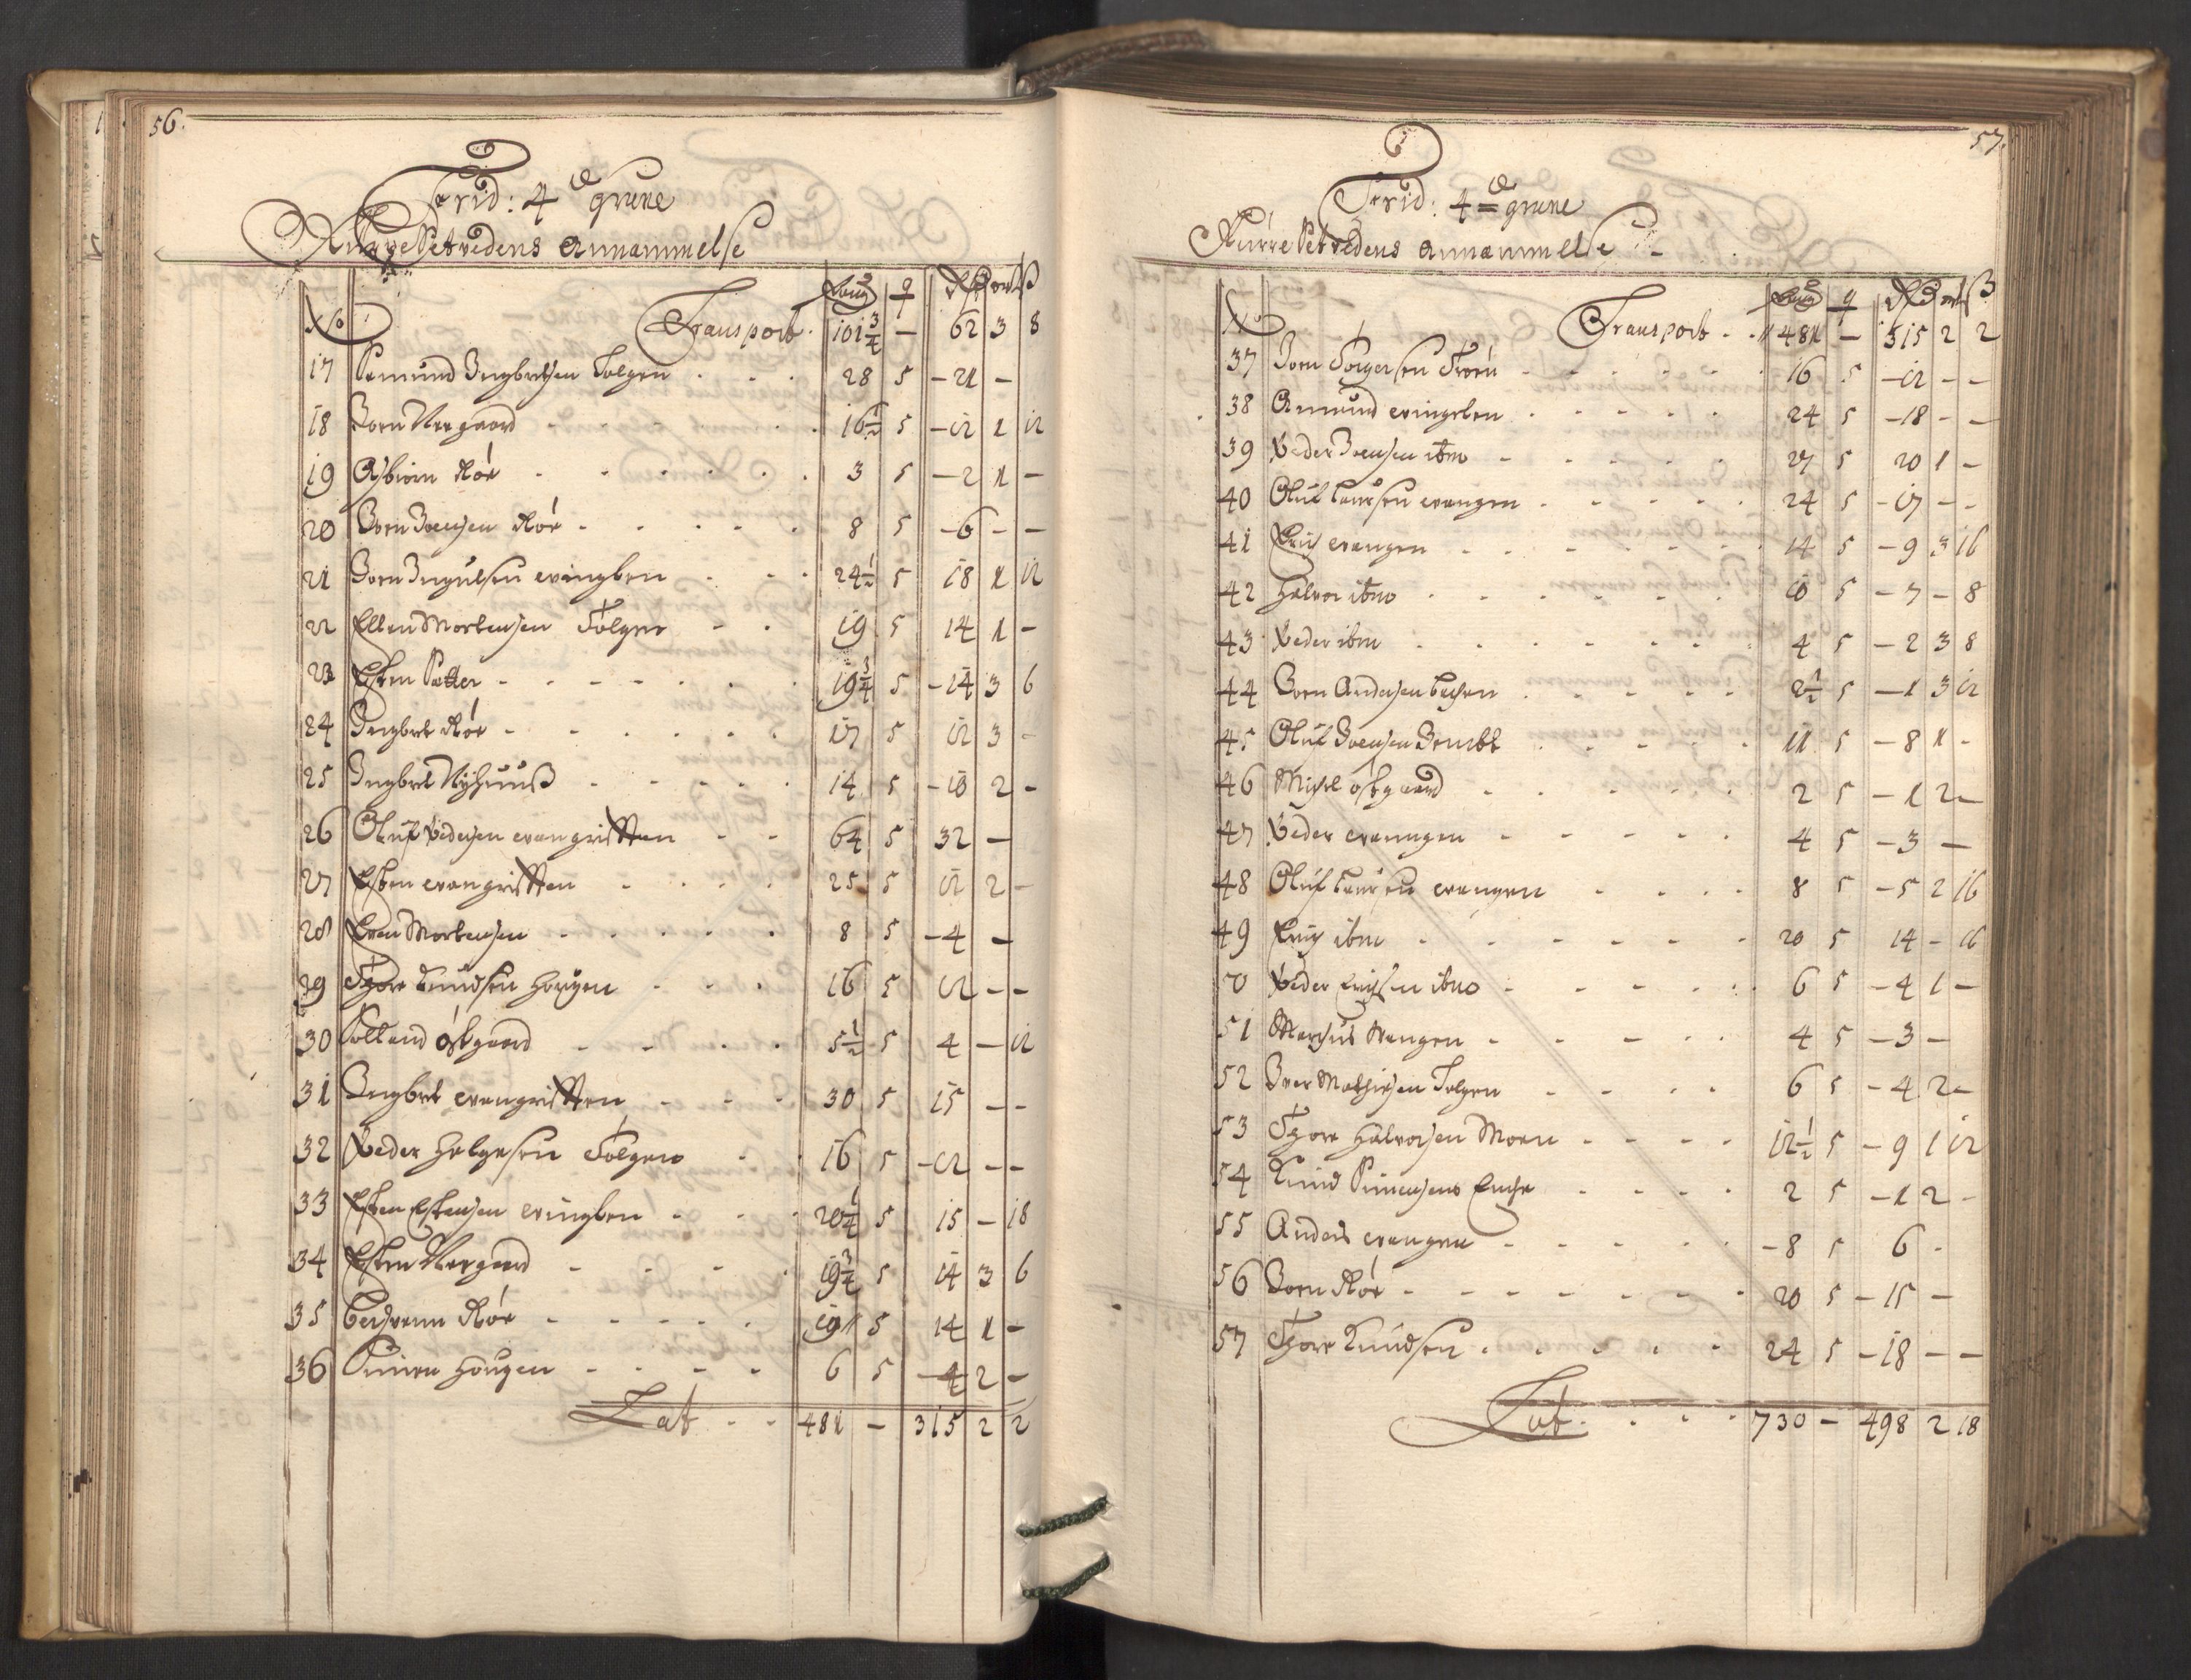 56.
Frid: 4de grune
Kurre Setvedens Annammelse
faug q Rdr ort ß
No Transport . 101 3/4 – 62 3 8
17 Semund Ingbretsen Tolgen . . . 28 5 – 21 –
18 Joen Nergaard 16 1/2 5 – 12 1 12
19 Asbiörn Röe 3 5 – 2 1 –
20 Joen Joensen Röe 8 5 – 6 – –
21 Joen Ingulsen evingben 24 1/2 5 18 1 12
22 Ellen Mortensen Tolgen 19 5 14 1 –
23 Esten Sætter 19 3/4 5 – 14 3 6
24 Ingbret Röe 17 5 12 3 –
25 Ingbret Nÿhuuß 14 5 – 10 2 –
26 Oluf Pedersen evangrifften 64 5 32 –
27 Esten evangrifften 25 5 12 2 –
28 Even Mortensen 8 5 – 4 –
29 Thore Knudsen Hougen 16 5 12 – –
30 östgaard 5 1/2 5 4 – 12
31 Ingbret evangrifften 30 5 15 – –
32 Peder Helgesen Tolgen 16 5 – 12 – –
33 Esten Estensen evingben 20 1/4 5 15 – 18
34 Esten Nergaard 19 3/4 5 14 3 6
35 Röe 19 5 14 1 –
36 Simen Hougen 6 5 – 4 2 –
Lat . . 481 – 315 2 2
57.
Frid: 4de grune
Kurre Setvedens Annammelse
faug q Rdr ort ß
No Transport . . 481 – 315 2 2
37 Joen Torgersen Troen 16 5 – 12 – –
38 Amund evingelen 24 5 – 18 – –
39 Peder Joensen ibm 27 5 20 1 –
40 Oluf Larsen evangen 24 5 – 17 – –
41 Erich evangen 14 5 – 9 3 16
42 Halvor ibm 10 5 – 7 – 8
43 Peder ibm 4 5 – 2 3 8
44 Joen Andersen 2 1/2 5 – 1 3 12
45 Oluf Joensen 11 5 – 8 1 –
46 Michel östgaard 2 5 – 1 2 –
47 Peder evanngen 4 5 – 3 –
48 Oluf Larsen evangen 8 5 – 5 2 16
49 Erich ibm 20 5 14 – 16
50 Peder Erichsen ibm 6 5 – 4 1 –
51 Marchus Vangen 4 5 – 3 –
52 Iver Mathiesen Tolgen 6 5 – 4 2 –
53 Thore Halvorsen Moen 12 1/2 5 – 9 1 12
54 Knud Simensens Enche 2 5 – 1 2 –
55 Anders evangen – 8 5 6 –
56 Joen Röe 20 5 – 15 –
57 Thore Knudsen 24 5 – 18 – –
Lat . . . . 730 – 498 2 18